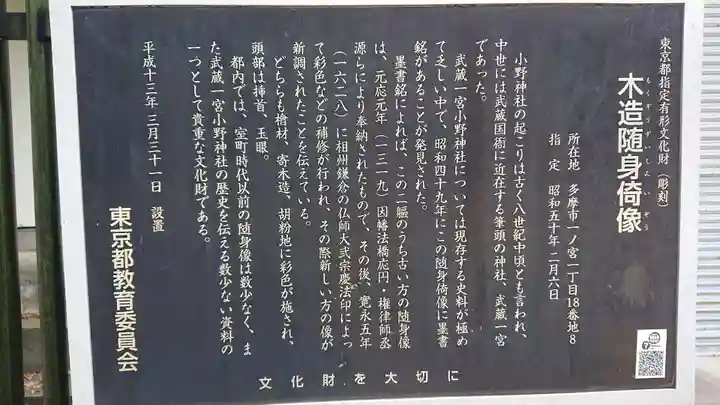 東京都指定有形文化財（彫刻）
もくぞうずいしんいぞう
木造随身倚像
所在地　多摩市一ノ宮一丁目18番地8
指　定　昭和五十年二月六日
小野神社の起こりは古く八世紀中頃とも言われ、
中世には武蔵国衙に近在する筆頭の神社、武蔵一宮
であった。
武蔵一宮小野神社については現存する史料が極め
て乏しい中で、昭和四十九年にこの随身倚像に墨書
銘があることが発見された。
墨書銘によれば、この二軀のうち古い方の随身像
は、元応元年（一三一九）因幡法橋応円・権律師丞
源らにより奉納されたもので、その後、寛永五年
（一六二八）に相州鎌倉の仏師大弐宗慶法印によっ
て彩色などの補修が行われ、その際新しい方の像が
新調されたことを伝えている。
どちらも檜材、寄木造、胡粉地に彩色が施され、
頭部は挿首、玉眼。
都内では、室町時代以前の随身像は数少なく、ま
た武蔵一宮小野神社の歴史を伝える数少ない資料の
一つとして貴重な文化財である。
平成十三年三月三十一日　設置
東京都教育委員会
文化財を大切に